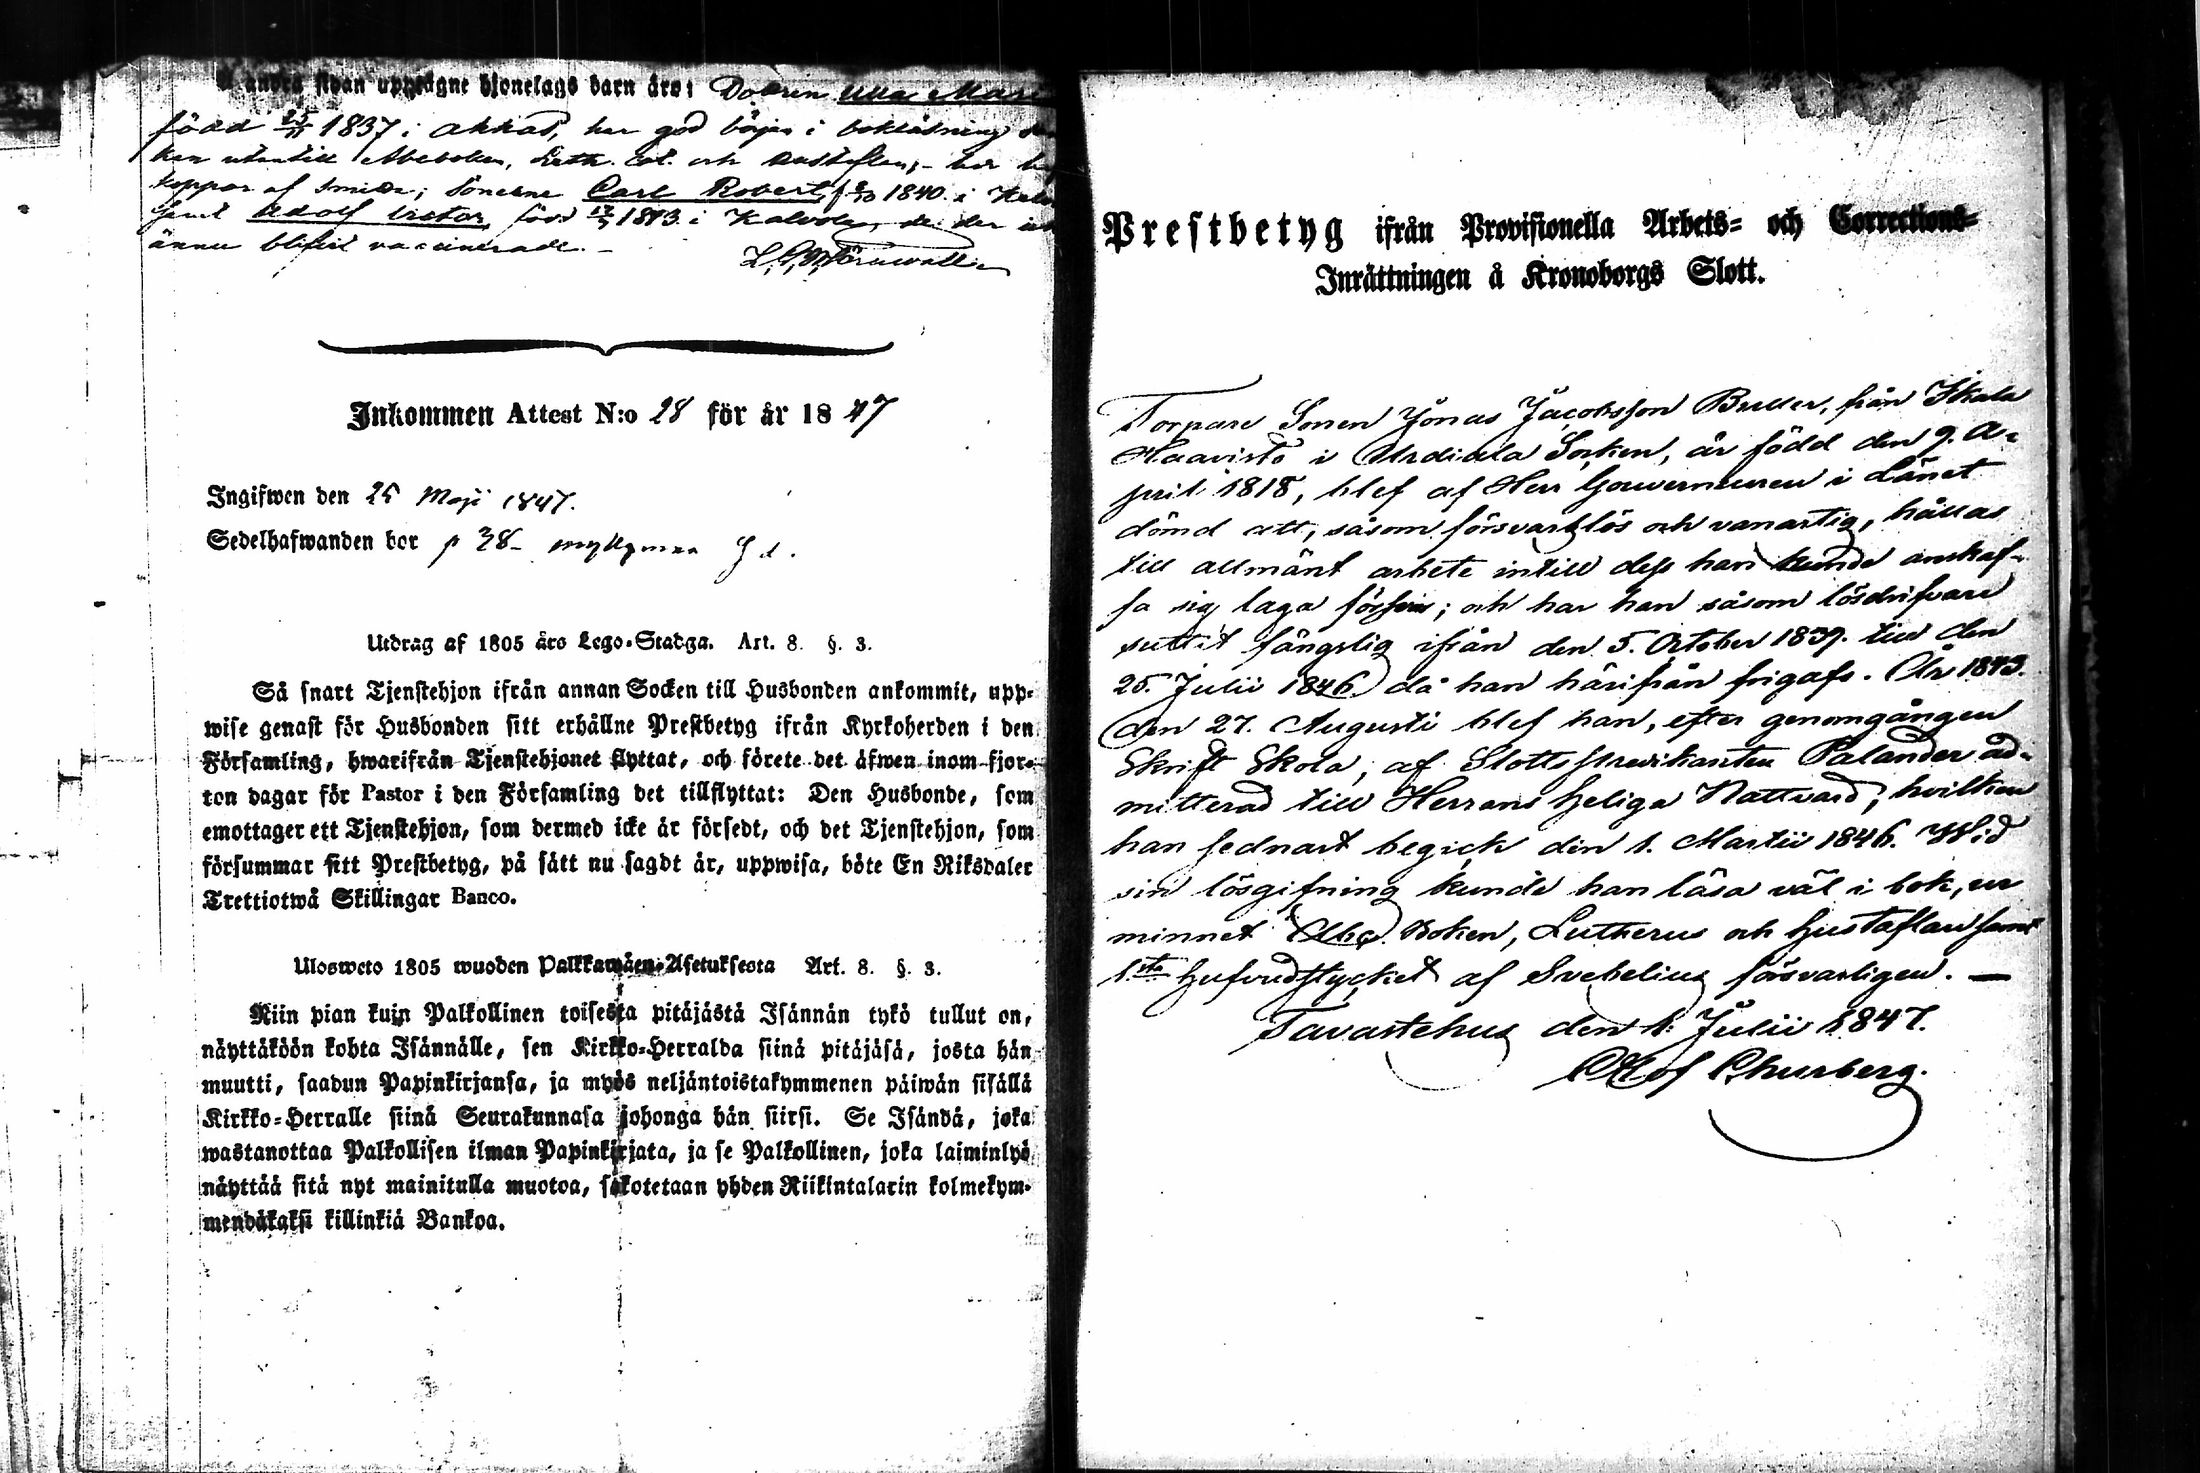 å andra sidan upptagne hjonelags barn äro: Dottren Ulla Mari
född 25/11 1837 i Akkas, har god början i bokläsning
kan utantill Abeboken, Luth. Cat. och Hustaflan,
koppor af smitta; Sönerne Carl Robert, f. 1840. i
samt Adolf Victor, född 1843 i Kalvola,
ännu blifvit vaccinerade. –
Inkommen Attest N:o 28 för år 1847
Ingifwen den 25 Maji 1847.
Sedelhafwanden bor p 38
Utdrag af 1805 års Lego-Stadga. Art. 8. §. 3.
Så snart Tjenstehjon ifrån annan Socken till Husbonden ankommit, upp-
wise genast för Husbonden sitt erhållne Prestbetyg ifrån Kyrkoherden i den
Församling, hwarifrån Tjenstehjonet flyttat, och förete det äfwen inom fjor-
ton dagar för Pastor i den Församling det tillflyttat: Den Husbonde, som
emottager ett Tjenstehjon, som dermed icke är försedt, och det Tjenstehjon, som
försummar sitt Prestbetyg, på sätt nu sagdt är, uppwisa, böte En Riksdaler
Trettiotwå Skillingar Banco.
Ulosweto 1805 wuoden Palkkawäen-Asetuksesta Art. 8. §. 3.
Niin pian kuin Palkollinen toisesta pitäjästä Isännän tykö tullut on,
näyttäköön kohta Isännälle, sen Kirkko-Herralda siinä pitäjäsä, josta hän
muutti, saadun Papinkirjansa, ja myös neljäntoistakymmenen päiwän sisällä
Kirkko-Herralle siinä Seurakunnasa johonga hän siirsi. Se Isändä, joka
wastanottaa Palkollisen ilman Papinkirjata, ja se Palkollinen, joka laiminlyö
näyttää sitä nyt mainitulla muotoa, sakotetaan yhden Riikintalarin kolmekym-
mendäkaksi killinkiä Bankoa.
Prestbetyg ifrån Provisionella Arbets- och Corrections-
Inrättningen å Kronoborgs Slott.
Torpare Sonen Jonas Jacobsson Buller, från Skala
Haavisto i Urdiala Socken, är född den 9. A-
pril 1818, blef af Herr Gouverneuren i Länet
dömd att, såsom försvarslös och vanartig, hållas
till allmänt arbete intill dess han kunde anskaf-
fa sig laga försvar; och har han såsom lösdrifvare
suttit fängslig ifrån den 5. October 1839. till den
25. Julii 1846 då han härifrån frigafs. År 1843.
den 27. Augusti blef han, efter genomgången
Skrift Skola, af Slottspredikanten Palander ad-
mitterad till Herrans heliga Nattvard; hvilken
han sednast begick den 1. Martii 1846. Wid
sin lösgifning kunde han läsa väl i bok, ur
minnet Abc Boken, Lutherus och hustaflan samt
1sta hufvudstycket af Svebelius försvarligen. —
Tavastehus den 1. Julii 1847.
Olof Churberg.